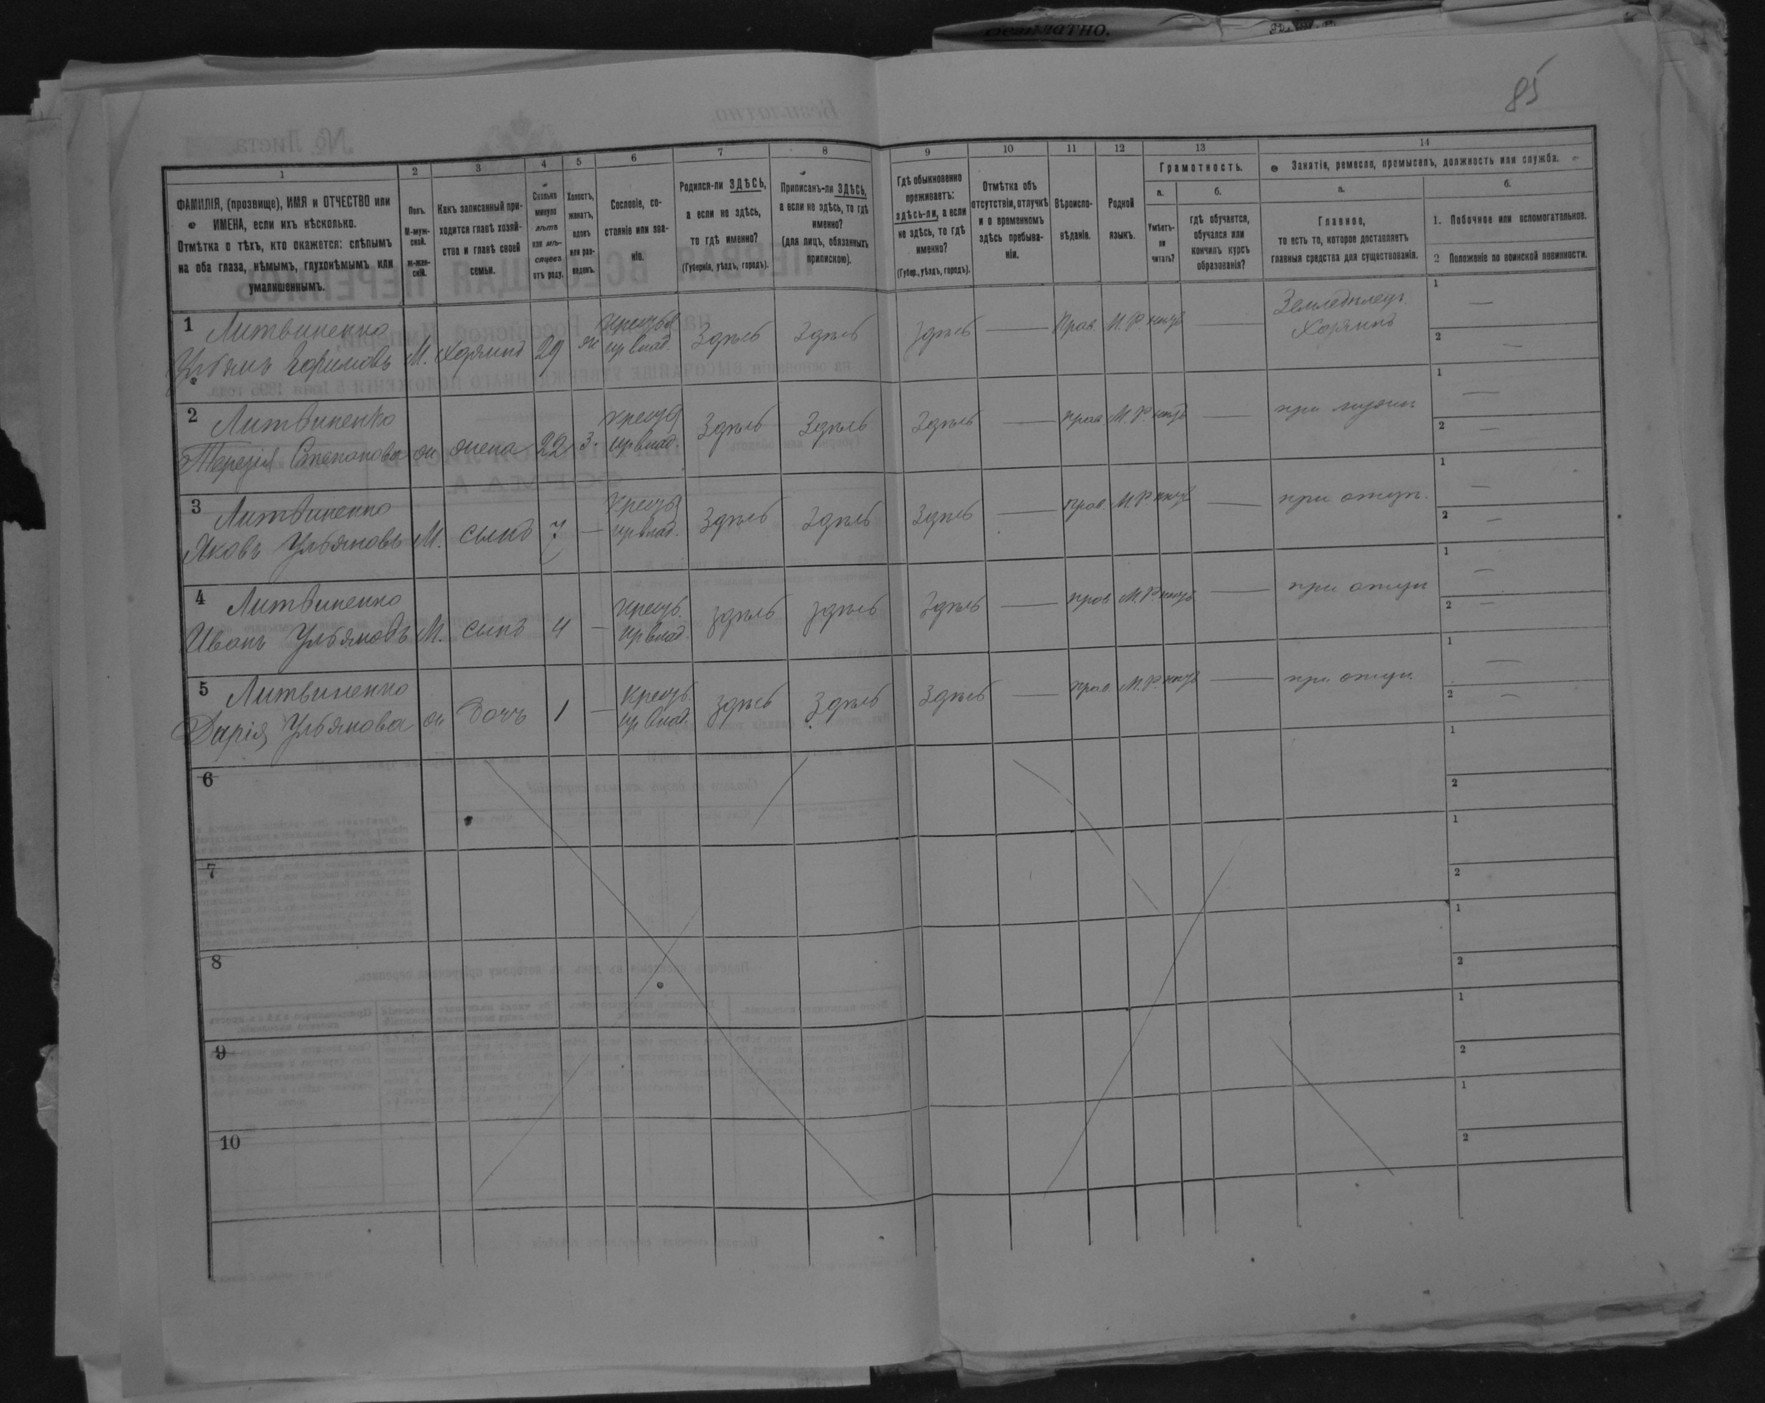 Безплатно.
85
1 2 3 4 5 6 7 8 9 10 11 12 13 14
ФАМИЛІЯ, (прозвище), ИМЯ и ОТЧЕСТВО или ИМЕНА, если ихъ нѣсколько.
Отмѣтка о тѣхъ, кто окажется: слѣпымъ на оба глаза, нѣмымъ, глухонѣмымъ или умалишеннымъ.
Полъ.
М-мужской.
ж-женскій.
Какъ записанный приходится главѣ хозяйства и главѣ своей семьи.
Сколько минуло лѣтъ или мѣсяцевъ отъ роду.
Холостъ, женатъ, вдовъ или разведенъ.
Сословіе, состояніе или званіе.
Родился-ли ЗДѢСЬ, а если не здѣсь, то гдѣ именно?
(Губернія, уѣздъ, городъ).
Приписанъ-ли ЗДѢСЬ, а если не здѣсь, то гдѣ именно?
(для лицъ, обязанныхъ припискою).
Гдѣ обыкновенно проживаетъ: здѣсь-ли, а если не здѣсь, то гдѣ именно?
(Губер., уѣздъ, городъ).
Отмѣтка объ отсутствіи, отлучкѣ и о временномъ здѣсь пребываніи.
Вѣроисповѣданіе.
Родной языкъ.
Грамотность.
а.
Умѣетъ-ли читать?
б.
гдѣ обучается, обучался или кончилъ курсъ образованія?
Занятіе, ремесло, промыселъ, должность или служба.
а.
Главное,
то есть то, которое доставляетъ главныя средства для существованія.
б.
1. Побочное или вспомогательное.
2 Положеніе по воинской повинности.
1 Литвиненко
Ульянъ Ефимовъ М. Хозяинъ 29 ж Здѣсь Здѣсь Здѣсь — Прав М. Р. — Хозяинъ
1 —
2 —
2 Литвиненко
Терезія Степанова ж жена 22 з. Здѣсь Здѣсь Здѣсь — прав М. Р. —
1 —
2 —
3 Литвиненко
Яковъ Ульяновъ М. сынъ 7 — Здѣсь Здѣсь Здѣсь — прав. М. Р. — при отцу.
1 —
2 —
4 Литвиненко
Иванъ Ульяновъ М. сынъ 4 — здѣсь здѣсь Здѣсь — прав М. Р. — при отцу
1 —
2 —
5 Литвиненко
Дарія Ульянова ж дочь 1 — здѣсь Здѣсь Здѣсь — прав М. Р. — при отцу
1 —
2 —
6
1
2
7
1
2
8
1
2
9
1
2
10
1
2